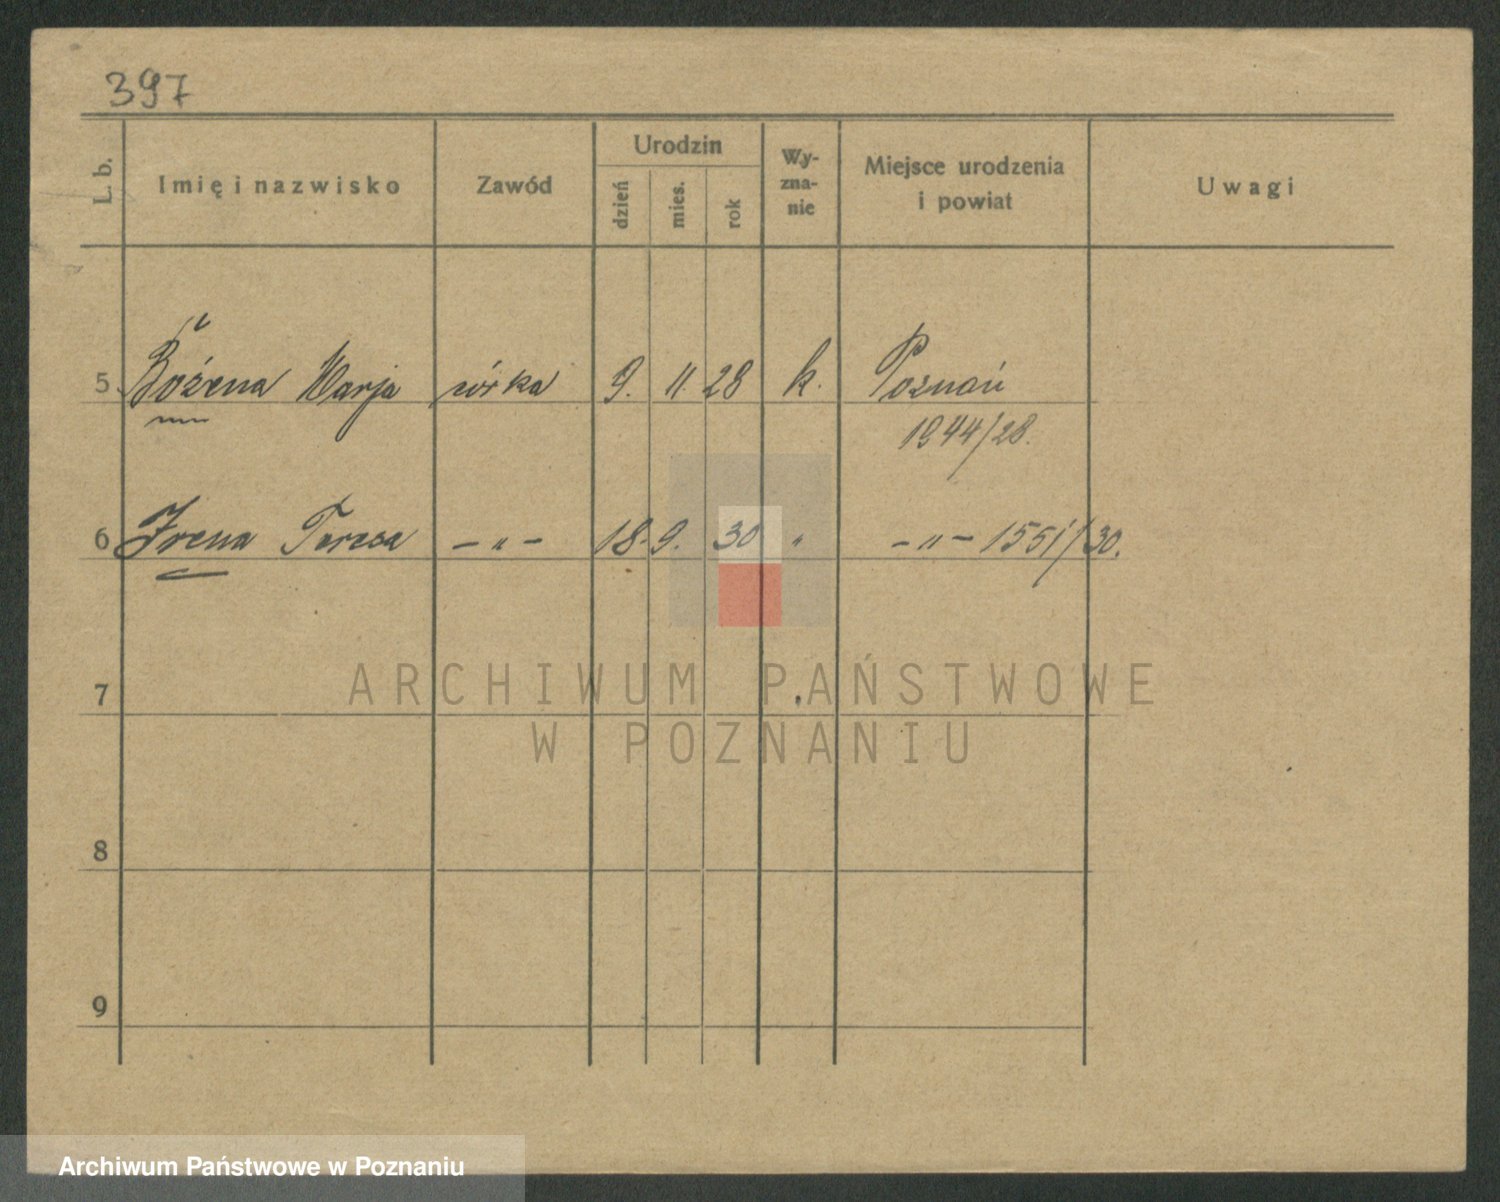 397
L. b. Imię i nazwisko Zawód Urodzin dzień mies. rok Wy-zna-nie Miejsce urodzenia i powiat Uwagi
5 Bożena Marja córka 9. 11. 28 k. Poznań
1944/28.
6 Irena Teresa — " — 18. 9. 30 " — " — 1551/30.
7
8
9
ARCHIWUM PAŃSTWOWE
W POZNANIU
Archiwum Państwowe w Poznaniu